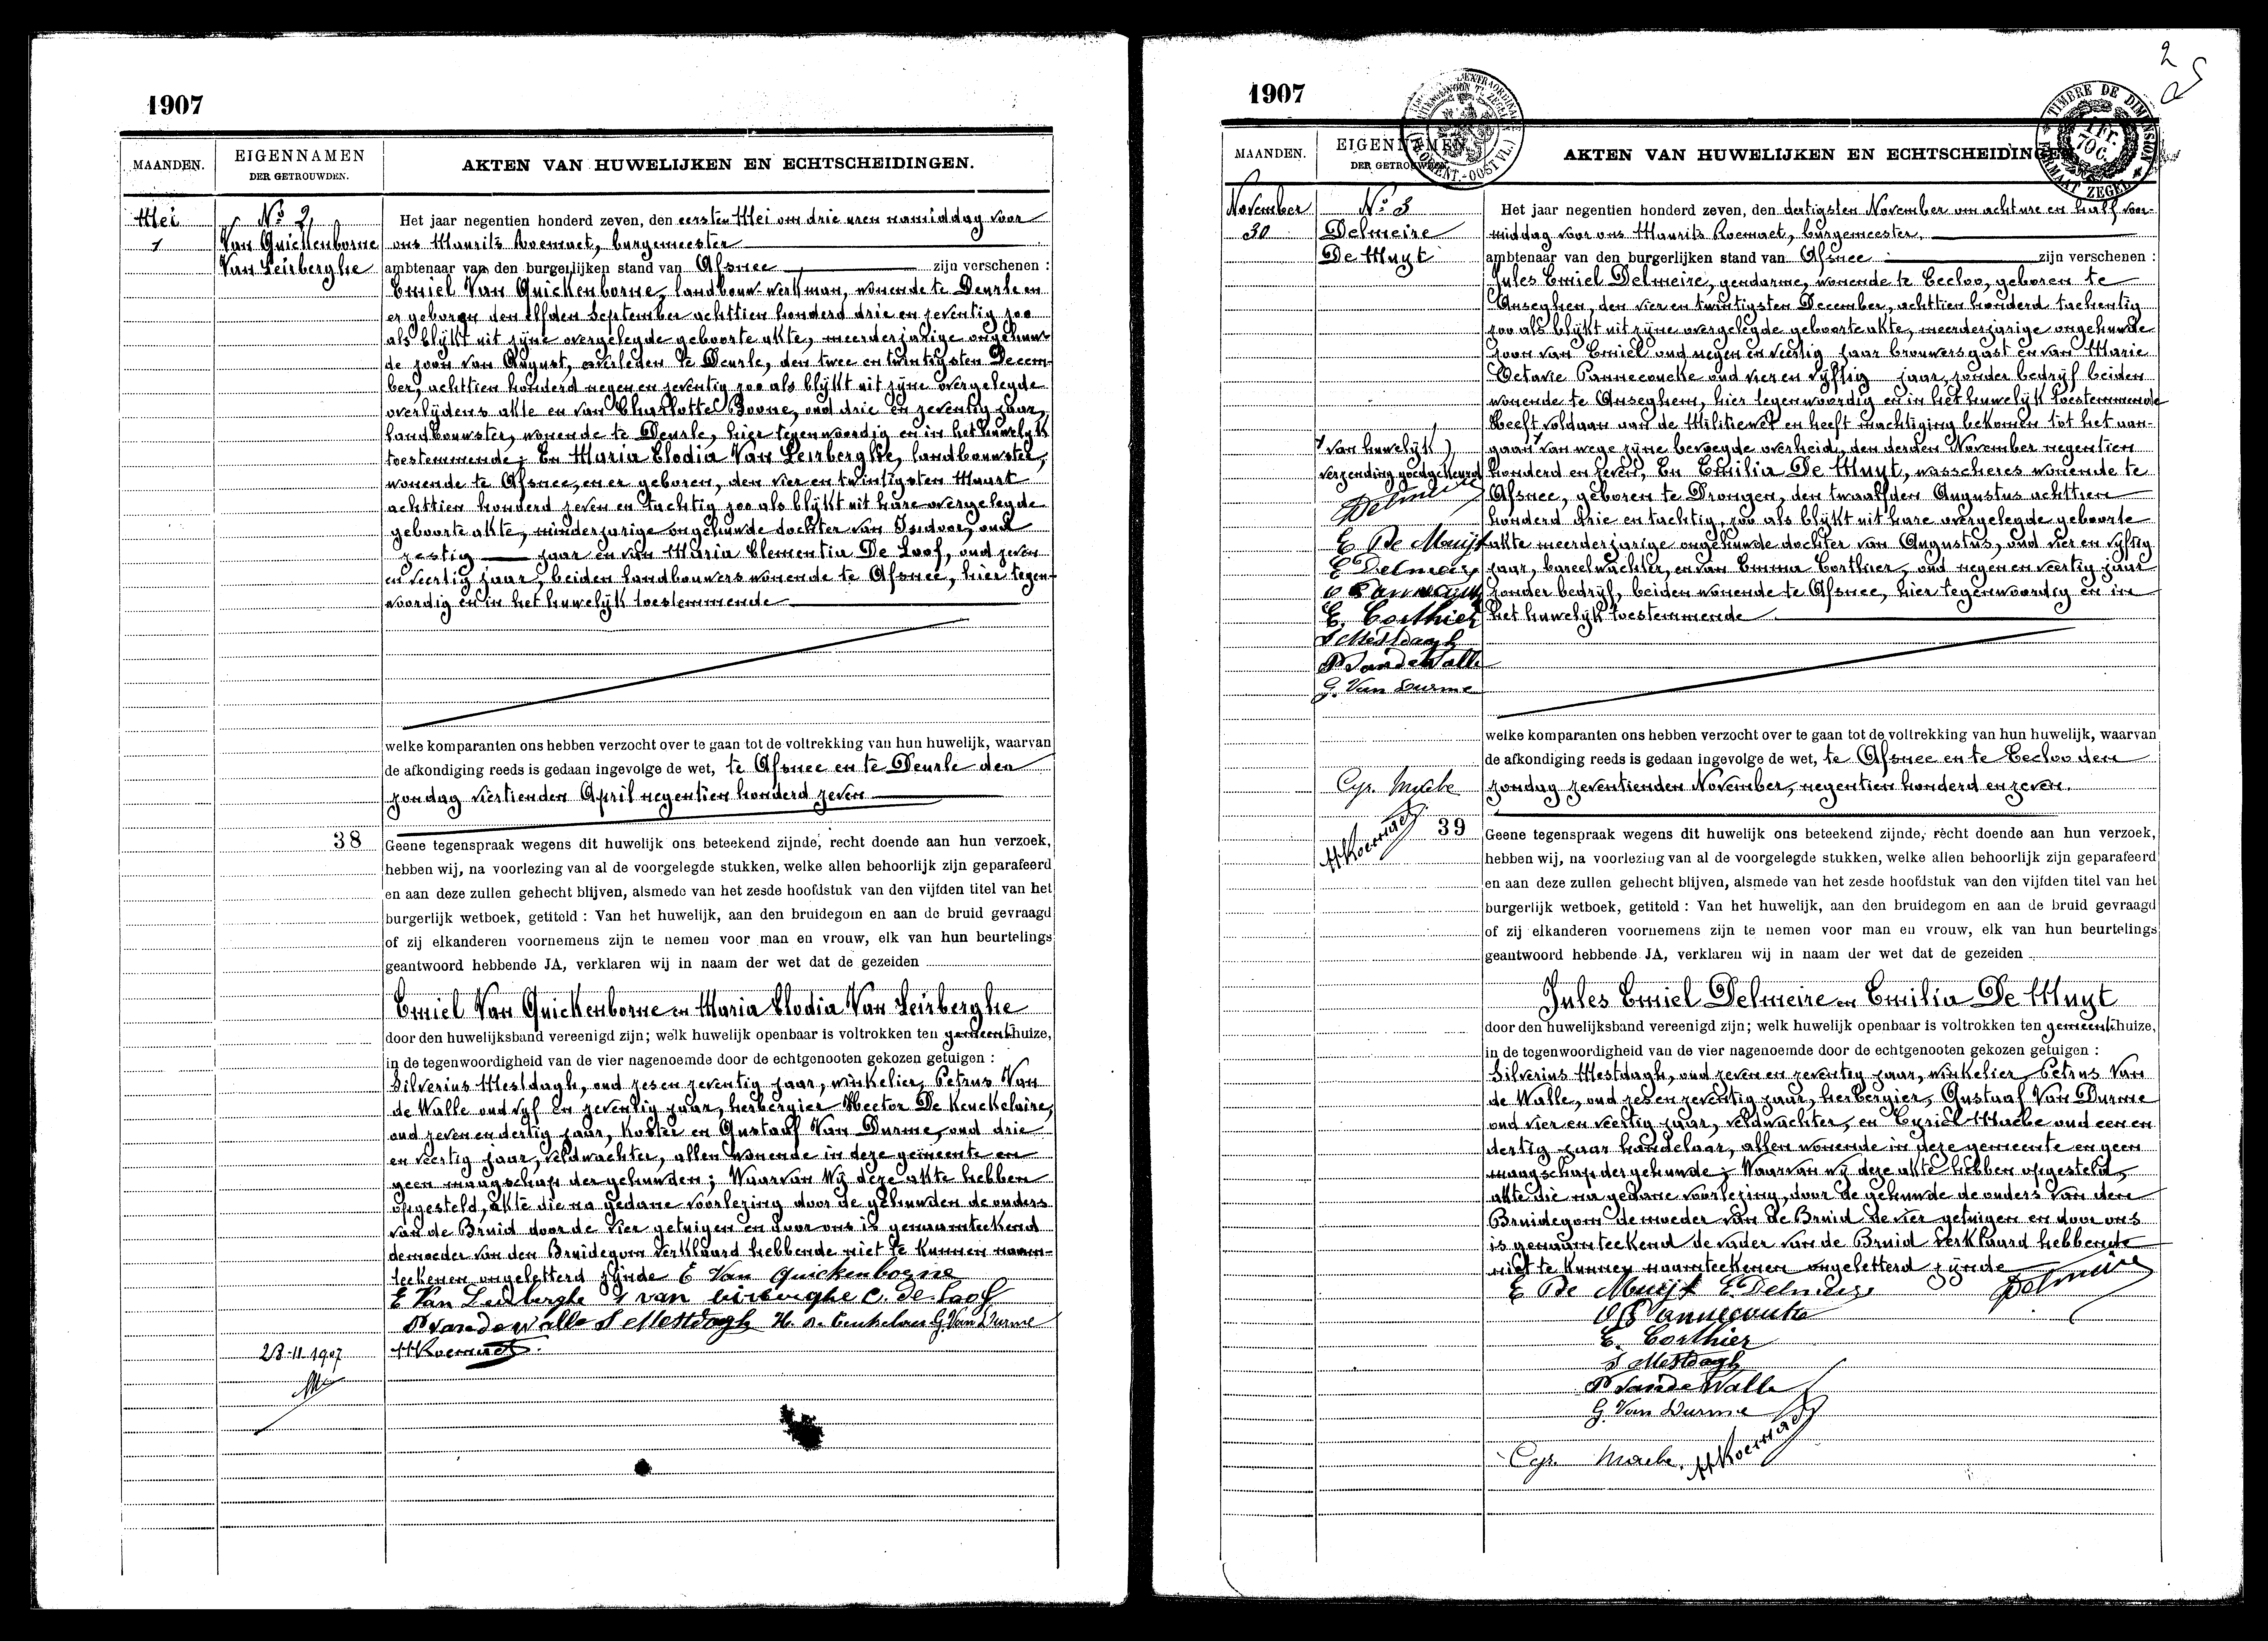 1907
MAANDEN.
EIGENNAMEN
DER GETROUWDEN.
AKTEN VAN HUWELIJKEN EN ECHTSCHEIDINGEN.
Mei
1
No 2,
Van Quickenborne
Van Leirberghe
Het jaar negentien honderd zeven, den eersten Mei om drie uren namiddag voor
ons Maurits Roemaet, burgemeester
ambtenaar van den burgerlijken stand van Afsnee, zijn verschenen :
Emiel Van Quickenborne, landbouw-werkman, wonende te Deurle en
er geboren den elfden September achttien honderd drie en zeventig zoo
als blijkt uit zijne overgelegde geboorte akte, meerderjarige ongehuw-
de zoon van August, overleden te Deurle, den twee en twintigsten Decem-
ber, achttien honderd negen en zeventig zoo als blijkt uit zijne overgelegde
overlijdens akte en van Charlotte Boone, oud drie en zeventig jaar,
landbouwster, wonende te Deurle, hier tegenwoordig en in het huwelijk
toestemmende; En Maria Elodia Van Leirberghe, landbouwster,
wonende te Afsnee, en er geboren, den vier en twintigsten Maart
achttien honderd zeven en tachtig zoo als blijkt uit hare overgelegde
geboorte akte, minderjarige ongehuwde dochter van Isidoor, oud
zestig jaar en van Maria Clementia De Loof, oud zeven
en veertig jaar, beiden landbouwers wonende te Afsnee, hier tegen-
woordig en in het huwelijk toestemmende
welke komparanten ons hebben verzocht over te gaan tot de voltrekking van hun huwelijk, waarvan
de afkondiging reeds is gedaan ingevolge de wet, te Afsnee en te Deurle den
zondag viertienden April negentien honderd zeven
38
Geene tegenspraak wegens dit huwelijk ons beteekend zijnde, recht doende aan hun verzoek,
hebben wij, na voorlezing van al de voorgelegde stukken, welke allen behoorlijk zijn geparafeerd
en aan deze zullen gehecht blijven, alsmede van het zesde hoofdstuk van den vijfden titel van het
burgerlijk wetboek, getiteld : Van het huwelijk, aan den bruidegom en aan de bruid gevraagd
of zij elkanderen voornemens zijn te nemen voor man en vrouw, elk van hun beurtelings
geantwoord hebbende JA, verklaren wij in naam der wet dat de gezeiden
Emiel Van Quickenborne en Maria Elodia Van Leirberghe
door den huwelijksband vereenigd zijn; welk huwelijk openbaar is voltrokken ten gemeentehuize,
in de tegenwoordigheid van de vier nagenoemde door de echtgenooten gekozen getuigen :
Silverius Mestdagh, oud zes en zeventig jaar, winkelier, Petrus Van
de Walle oud vijf en zeventig jaar, herbergier Hector De Keuckelaire,
oud zeven en dertig jaar, koster en Gustaaf Van Durme, oud drie
en veertig jaar, veldwachter, allen wonende in deze gemeente en
geen maagschap der gehuwden; Waarvan Wij deze akte hebben
opgesteld, akte die na gedane voorlezing door de gehuwden de ouders
van de Bruid door de vier getuigen en door ons is genaamteekend
de moeder van den Bruidegom verklaard hebbende niet te kunnen naam-
teekenen ongeletterd zijnde E Van Quickenborne
E Van Leirberghe I van leirberghe C. De Loof
P Vandewalle S Mestdagh H. De Keukelaer G. Van Durme
MRoemaet
28-11 1907
2
1907
MAANDEN.
EIGENNAMEN
DER GETROUWDEN
AKTEN VAN HUWELIJKEN EN ECHTSCHEIDINGE
TIMBRE DE DIMENSION
FORMAAT ZEGEL
November
30
No 3
Delmeire
De Muyt
Het jaar negentien honderd zeven, den dertigsten November om acht ure en half voor-
middag voor ons Maurits Roemaet, burgemeester,
ambtenaar van den burgerlijken stand van Afsnee zijn verschenen :
Jules Emiel Delmeire, gendarme, wonende te Eecloo, geboren te
Anseghem, den vier en twintigsten December, achttien honderd tachentig
zoo als blijkt uit zijne overgelegde geboorte akte, meerderjarige ongehuwde
zoon van Emiel oud negen en veertig jaar brouwersgast en van Marie
Octavie Pannecoucke oud vier en vijftig jaar, zonder bedrijf beiden
wonende te Anseghem, hier tegenwoordig en in het huwelijk toestemmende
Heeft voldaan aan de Militiewet en heeft machtiging bekomen tot het aan-
gaan van wege zijne bevoegde overheid, den derden November negentien
honderd en zeven, En Emilia De Muyt, wasscheres wonende te
Afsnee, geboren te Drongen, den twaalfden Augustus achttien
honderd drie en tachtig, zoo als blijkt uit hare overgelegde geboorte
akte meerderjarige ongehuwde dochter van Augustus, oud vier en vijftig
jaar, bareelwachter, en van Emma Corthier, oud negen en veertig jaar
zonder bedrijf, beiden wonende te Afsnee, hier tegenwoordig en in
het huwelijk toestemmende
van huwelijk)
verzending goedgekeurd
Delmeire
E De Muijt
E Delmeire
E. Corthier
S Mestdagh
P VandeWalle
G. Van Durme
Cyr. Maebe
MRoemaet
welke komparanten ons hebben verzocht over te gaan tot de voltrekking van hun huwelijk, waarvan
de afkondiging reeds is gedaan ingevolge de wet, te Afsnee en te Eecloo den
zondag zeventienden November, negentien honderd en zeven.
39
Geene tegenspraak wegens dit huwelijk ons beteekend zijnde, recht doende aan hun verzoek,
hebben wij, na voorlezing van al de voorgelegde stukken, welke allen behoorlijk zijn geparafeerd
en aan deze zullen gehecht blijven, alsmede van het zesde hoofdstuk van den vijfden titel van het
burgerlijk wetboek, getiteld : Van het huwelijk, aan den bruidegom en aan de bruid gevraagd
of zij elkanderen voornemens zijn te nemen voor man en vrouw, elk van hun beurtelings
geantwoord hebbende JA, verklaren wij in naam der wet dat de gezeiden
Jules Emiel Delmeire en Emilia De Muyt
door den huwelijksband vereenigd zijn; welk huwelijk openbaar is voltrokken ten gemeentehuize,
in de tegenwoordigheid van de vier nagenoemde door de echtgenooten gekozen getuigen :
Silverius Mestdagh, oud zeven en zeventig jaar, winkelier, Petrus Van
de Walle, oud zes en zeventig jaar, herbergier, Gustaaf Van Durme
oud vier en veertig jaar, veldwachter, en Cyriel Maebe oud een en
dertig jaar handelaar, allen wonende in deze gemeente en geen
maagschap der gehuwde; Waarvan wij deze akte hebben opgesteld,
akte die na gedane voorlezing, door de gehuwde de ouders van den
Bruidegom de moeder van de Bruid de vier getuigen en door ons
is genaamteekend de vader van de Bruid verklaard hebbende
niet te kunnen naamteekenen ongeletterd zijnde
E De Muijt E Delmeire Delmeire
O Pannecoucke
E. Corthier
S Mestdagh
P VandeWalle
G. Van Durme
Cyr. Maebe. MRoemaet